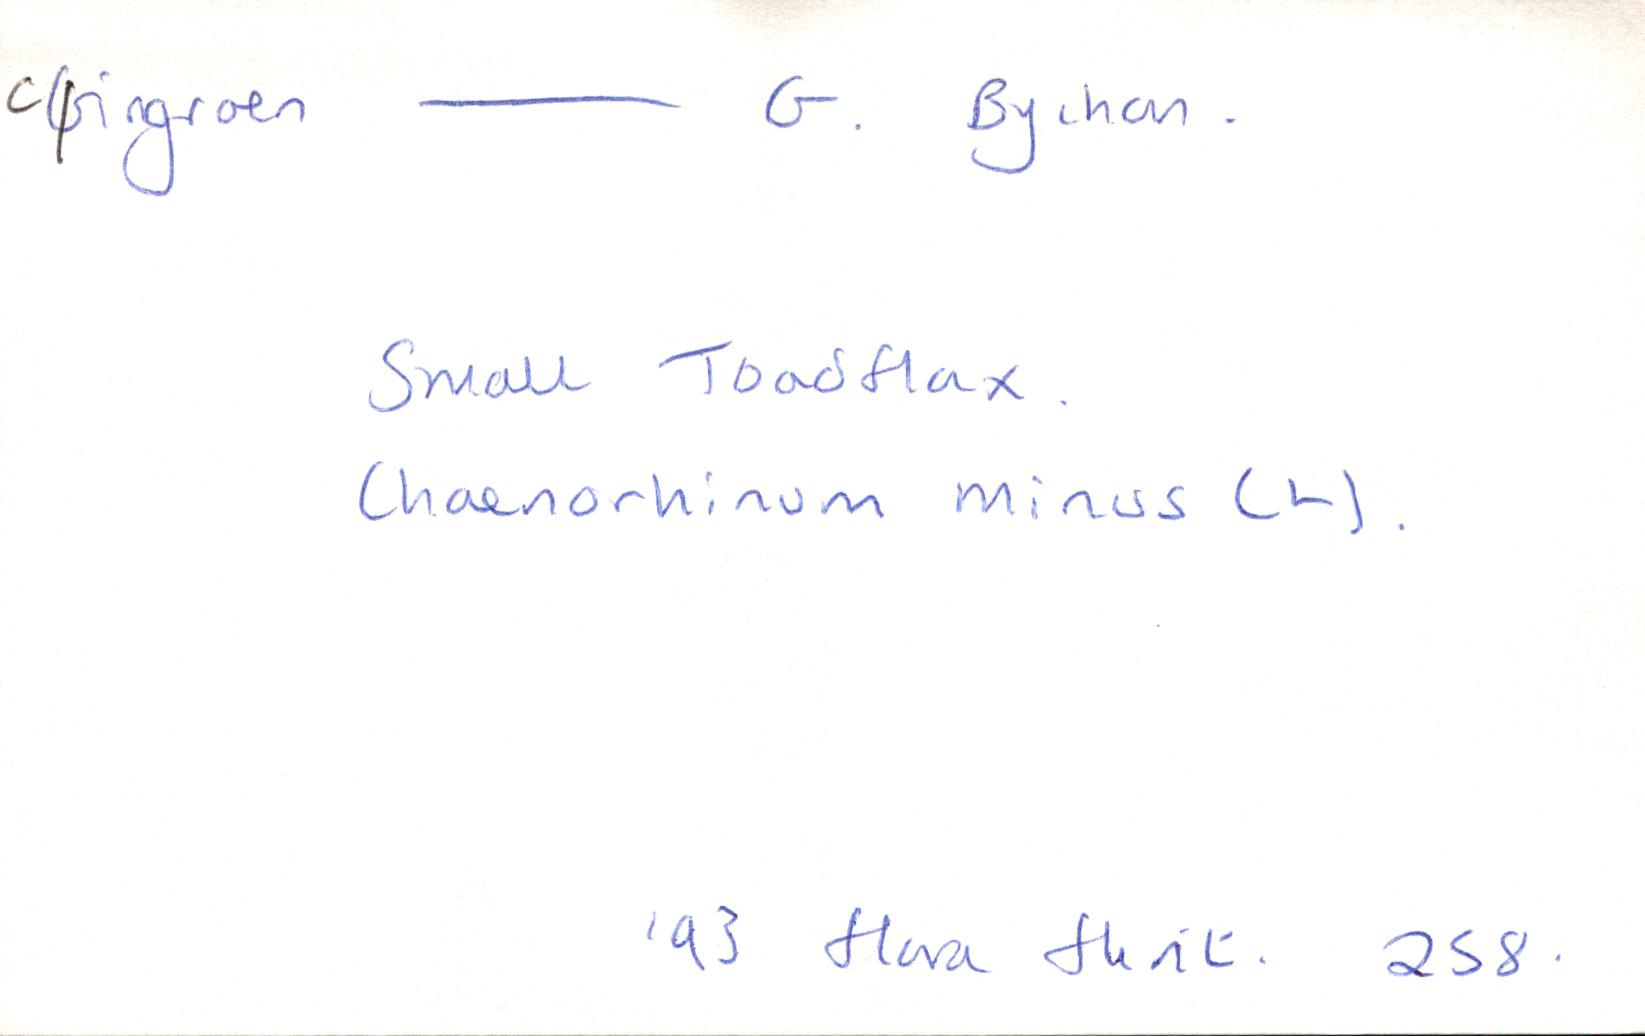 Cingroen — G. Bychan.
Small Toadflax.
Chaenorhinum minus (L).
'93 flora flint. 258.